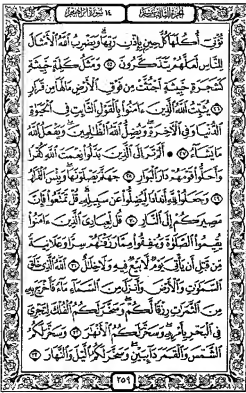 الجزء الثالث عشر ١٤ سورة ابراهيم
تُؤْتِىٓ أُكُلَهَا كُلَّ حِينٍۭ بِإِذْنِ رَبِّهَا ۗ وَيَضْرِبُ ٱللَّهُ ٱلْأَمْثَالَ
لِلنَّاسِ لَعَلَّهُمْ يَتَذَكَّرُونَ ٢٥ وَمَثَلُ كَلِمَةٍ خَبِيثَةٍ
كَشَجَرَةٍ خَبِيثَةٍ ٱجْتُثَّتْ مِن فَوْقِ ٱلْأَرْضِ مَا لَهَا مِن قَرَارٍ
٢٦ يُثَبِّتُ ٱللَّهُ ٱلَّذِينَ ءَامَنُوا۟ بِٱلْقَوْلِ ٱلثَّابِتِ فِى ٱلْحَيَوٰةِ
ٱلدُّنْيَا وَفِى ٱلْءَاخِرَةِ ۖ وَيُضِلُّ ٱللَّهُ ٱلظَّٰلِمِينَ ۚ وَيَفْعَلُ ٱللَّهُ
مَا يَشَآءُ ٢٧ ۞ أَلَمْ تَرَ إِلَى ٱلَّذِينَ بَدَّلُوا۟ نِعْمَتَ ٱللَّهِ كُفْرًا
وَأَحَلُّوا۟ قَوْمَهُمْ دَارَ ٱلْبَوَارِ ٢٨ جَهَنَّمَ يَصْلَوْنَهَا ۖ وَبِئْسَ ٱلْقَرَارُ
٢٩ وَجَعَلُوا۟ لِلَّهِ أَندَادًا لِّيُضِلُّوا۟ عَن سَبِيلِهِۦ ۗ قُلْ تَمَتَّعُوا۟ فَإِنَّ
مَصِيرَكُمْ إِلَى ٱلنَّارِ ٣٠ قُل لِّعِبَادِىَ ٱلَّذِينَ ءَامَنُوا۟
يُقِيمُوا۟ ٱلصَّلَوٰةَ وَيُنفِقُوا۟ مِمَّا رَزَقْنَٰهُمْ سِرًّا وَعَلَانِيَةً
مِّن قَبْلِ أَن يَأْتِىَ يَوْمٌ لَّا بَيْعٌ فِيهِ وَلَا خِلَٰلٌ ٣١ ٱللَّهُ ٱلَّذِى خَلَقَ
ٱلسَّمَٰوَٰتِ وَٱلْأَرْضَ وَأَنزَلَ مِنَ ٱلسَّمَآءِ مَآءً فَأَخْرَجَ بِهِۦ
مِنَ ٱلثَّمَرَٰتِ رِزْقًا لَّكُمْ ۖ وَسَخَّرَ لَكُمُ ٱلْفُلْكَ لِتَجْرِىَ
فِى ٱلْبَحْرِ بِأَمْرِهِۦ ۖ وَسَخَّرَ لَكُمُ ٱلْأَنْهَٰرَ ٣٢ وَسَخَّرَ لَكُمُ
ٱلشَّمْسَ وَٱلْقَمَرَ دَآئِبَيْنِ ۖ وَسَخَّرَ لَكُمُ ٱلَّيْلَ وَٱلنَّهَارَ ٣٣
٢٥٩